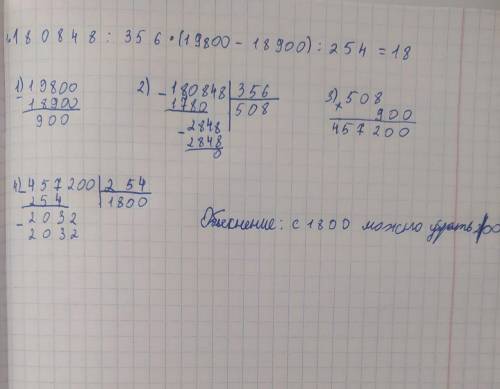 180848 : 356 · (19800 - 18900) : 254 = 18
1) 19800
- 18900
900
2) - 180848 | 356
1780 | 508
- 2848
2848
0
3) × 508
900
457200
4) - 457200 | 254
254 | 1800
- 2032
2032
Объяснение: с 1800 можно убрать 00